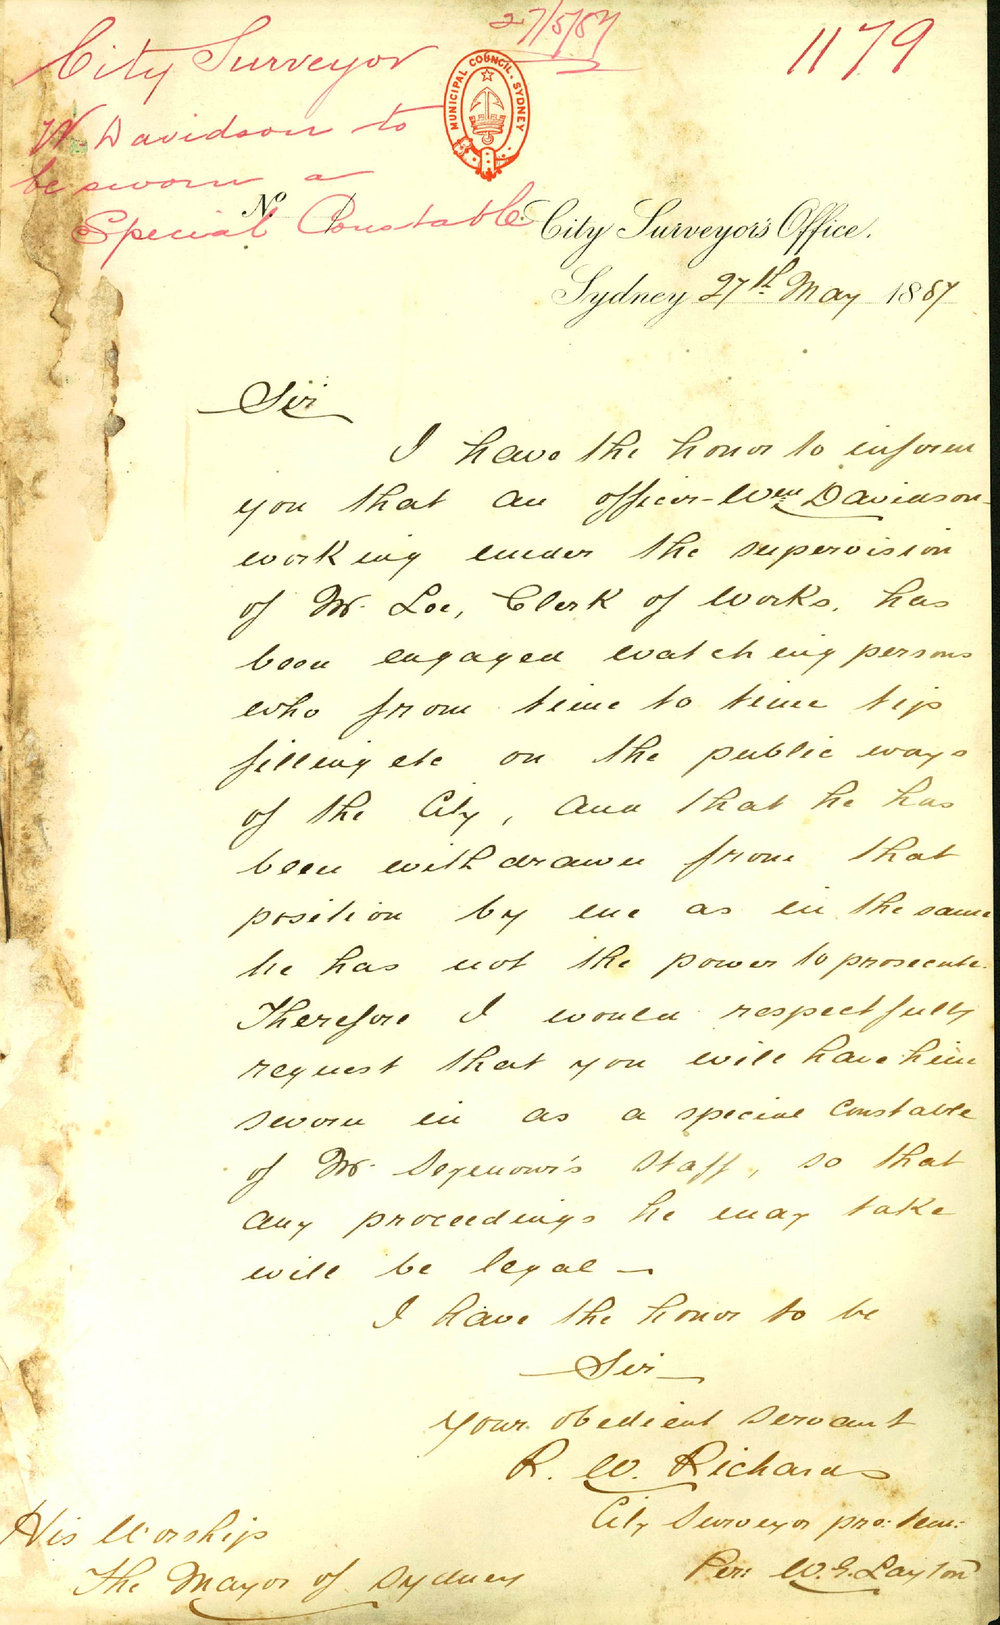 27/5/87
1179
City Surveyor
W. Davidson to
be sworn a
Special Constable
MUNICIPAL COUNCIL. SYDNEY
No
City Surveyor's Office.
Sydney 27th May 1887
Sir
I have the honor to inform
you that an officer - Wm Davidson -
working under the supervision
of Mr. Loe, Clerk of Works, has
been engaged watching persons
who from time to time tip
filling etc on the public ways
of the City, and that he has
been withdrawn from that
position by me as in the same
he has not the power to prosecute.
Therefore I would respectfully
request that you will have him
sworn in as a special Constable
of Mr. Seymour's Staff, so that
any proceedings he may take
will be legal —
I have the honor to be
Sir
Your obedient servant
R. W. Richards
City Surveyor pro: tem:
Per: W. G. Layton
His Worship
The Mayor of Sydney